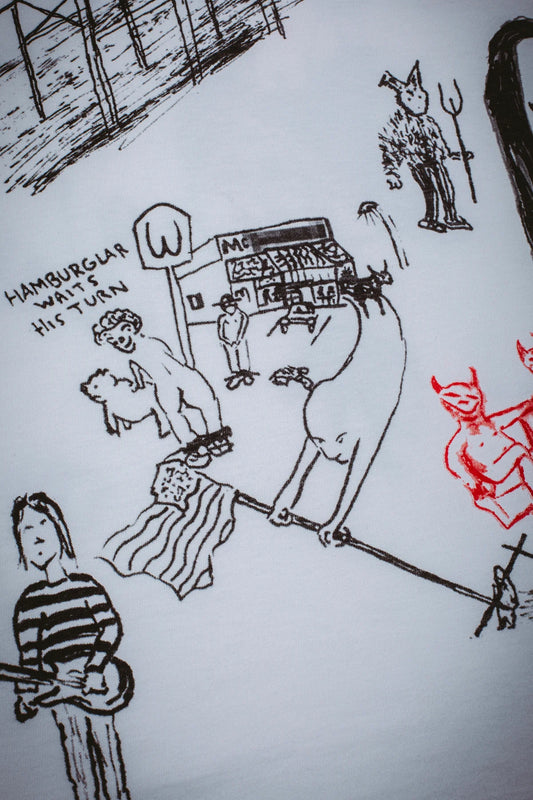 HAMBURGLAR
WAITS
HIS TURN
W
Mc